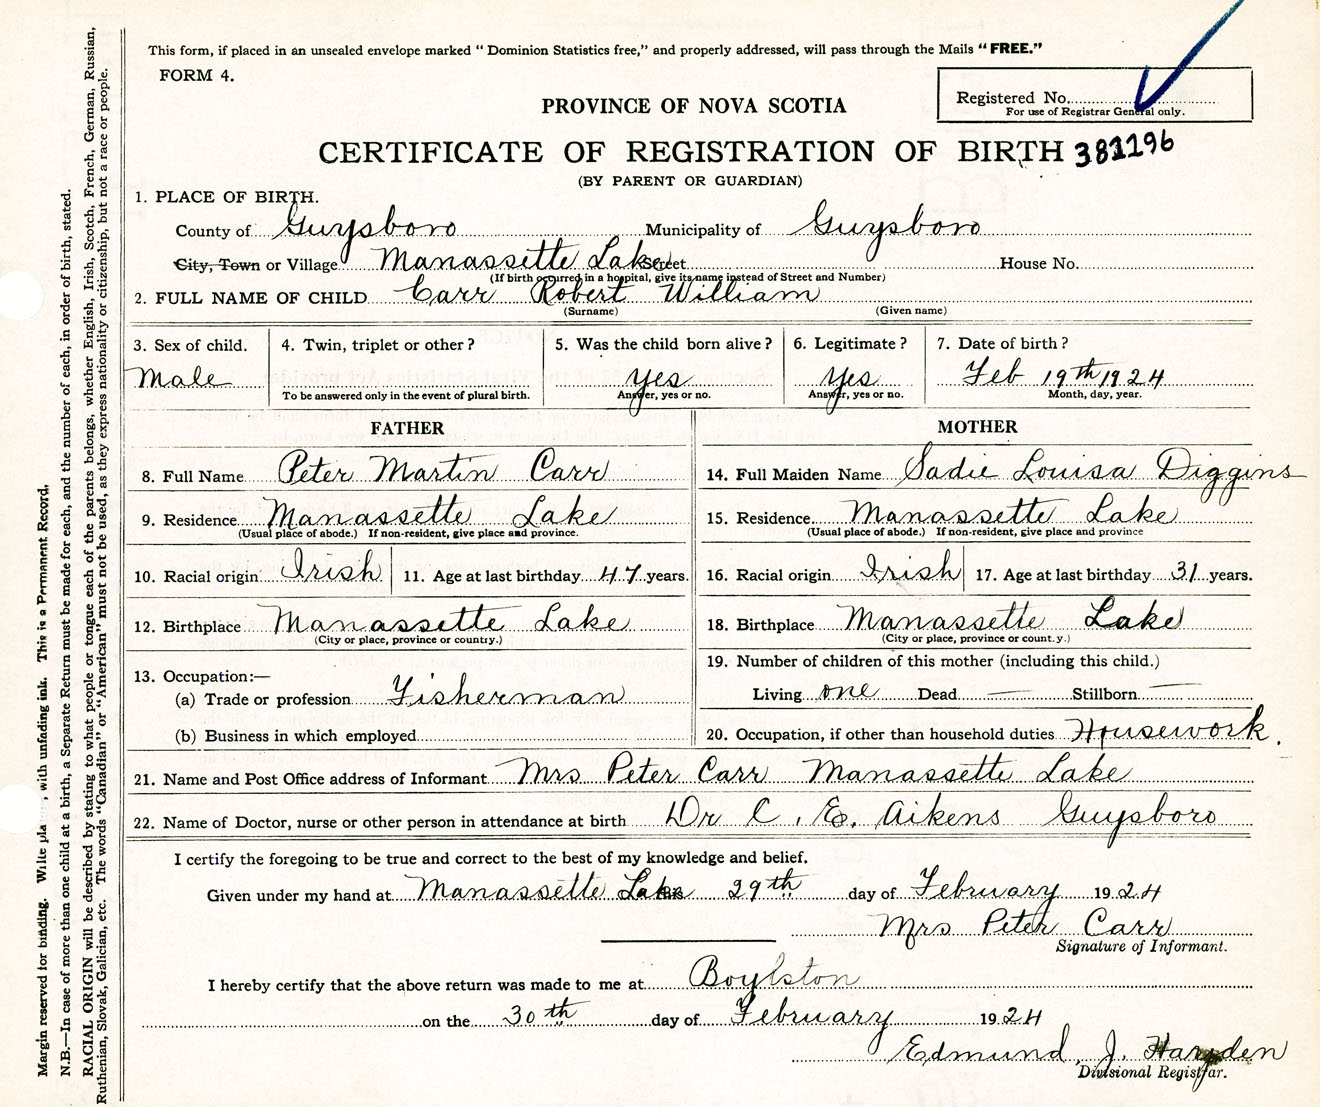 This form, if placed in an unsealed envelope marked “Dominion Statistics free,” and properly addressed, will pass through the Mails “FREE.”
FORM 4.
Registered No.
For use of Registrar General only.
PROVINCE OF NOVA SCOTIA
CERTIFICATE OF REGISTRATION OF BIRTH 381196
(BY PARENT OR GUARDIAN)
1. PLACE OF BIRTH.
County of Guysboro Municipality of Guysboro
City, Town or Village Manassette Lake Street House No.
(If birth occurred in a hospital, give its name instead of Street and Number)
2. FULL NAME OF CHILD Carr Robert William
(Surname) (Given name)
3. Sex of child. 4. Twin, triplet or other? 5. Was the child born alive? 6. Legitimate? 7. Date of birth?
Male yes yes Feb 19th 1924
To be answered only in the event of plural birth. Answer, yes or no. Answer, yes or no. Month, day, year.
FATHER MOTHER
8. Full Name Peter Martin Carr 14. Full Maiden Name Sadie Louisa Diggins
9. Residence Manassette Lake 15. Residence. Manassette Lake
(Usual place of abode.) If non-resident, give place and province. (Usual place of abode.) If non-resident, give place and province
10. Racial origin Irish 11. Age at last birthday 47 years. 16. Racial origin Irish 17. Age at last birthday 31 years.
12. Birthplace Manassette Lake 18. Birthplace Manassette Lake
(City or place, province or country.) (City or place, province or country.)
13. Occupation:— 19. Number of children of this mother (including this child.)
(a) Trade or profession Fisherman Living one Dead — Stillborn —
(b) Business in which employed 20. Occupation, if other than household duties Housework.
21. Name and Post Office address of Informant Mrs Peter Carr Manassette Lake
22. Name of Doctor, nurse or other person in attendance at birth Dr C. E. Aikens Guysboro
I certify the foregoing to be true and correct to the best of my knowledge and belief.
Given under my hand at Manassette Lake this 29th day of February 1924
Mrs Peter Carr
Signature of Informant.
I hereby certify that the above return was made to me at Boylston
on the 30th day of February 1924
Edmund J. Hayden
Divisional Registrar.
Margin reserved for binding. Write plainly, with unfading ink. This is a Permanent Record.
N.B.—In case of more than one child at a birth, a Separate Return must be made for each, and the number of each, in order of birth, stated.
RACIAL ORIGIN will be described by stating to what people or tongue each of the parents belongs, whether English, Irish, Scotch, French, German, Russian,
Ruthenian, Slovak, Galician, etc. The words “Canadian” or “American” must not be used, as they express nationality or citizenship, but not a race or people.